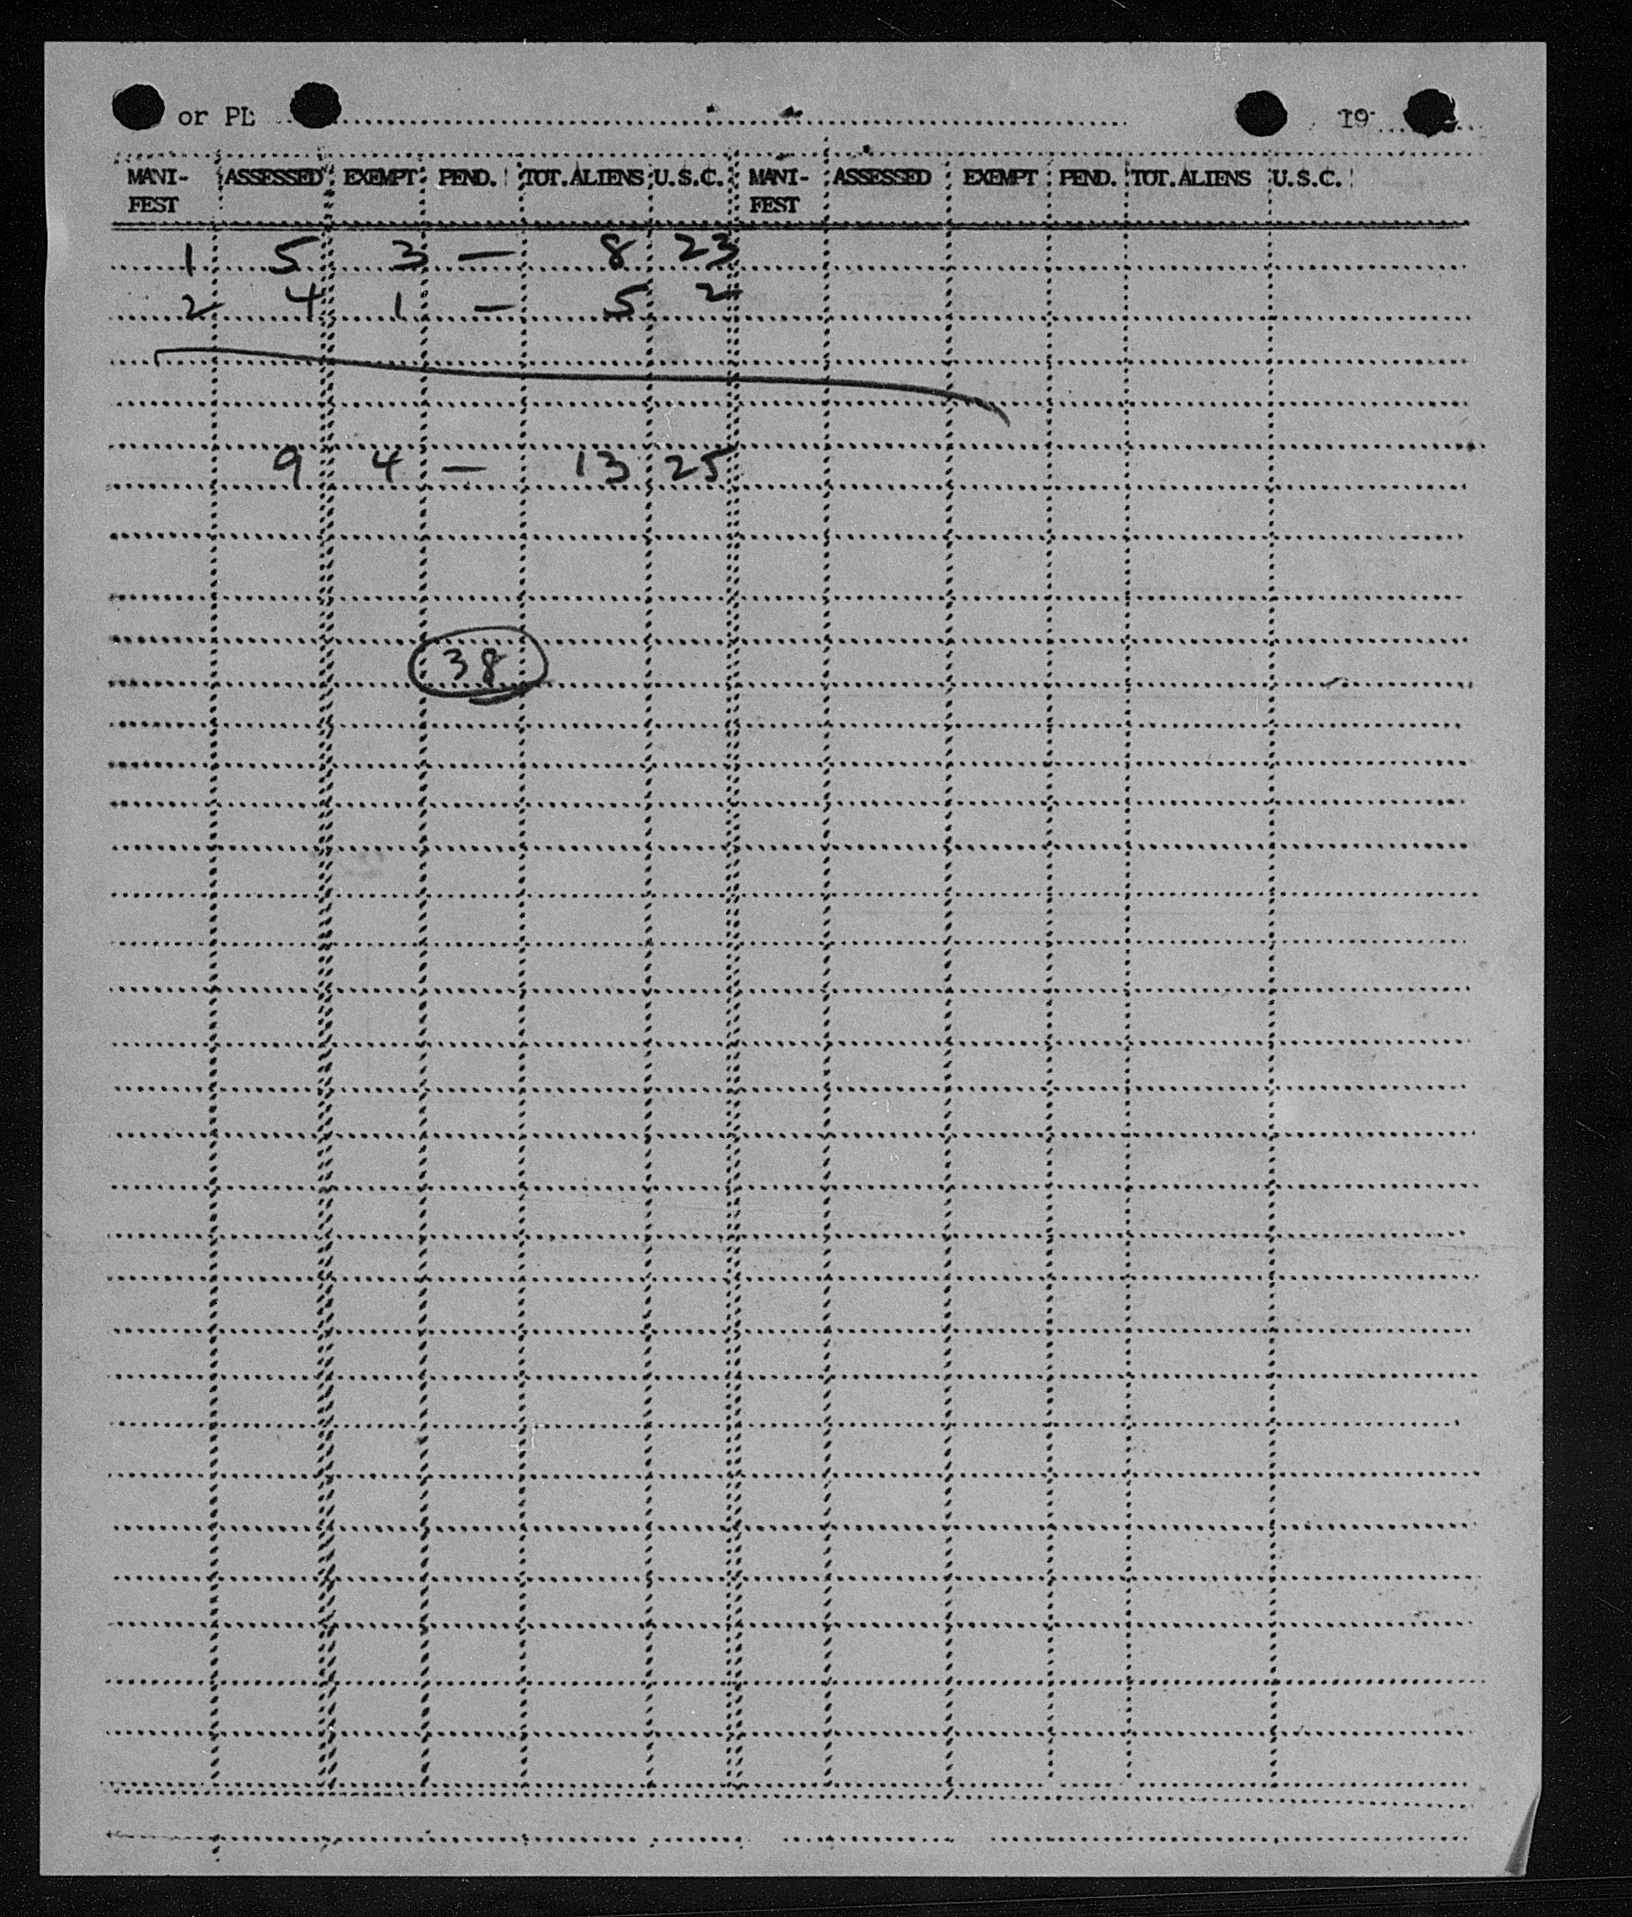 or PL 19
MANI- ASSESSED EXEMPT PEND. TOT.ALIENS U.S.C. MANI- ASSESSED EXEMPT PEND. TOT.ALIENS U.S.C.
FEST FEST
1 5 3 — 8 23
2 4 1 — 5 2
9 4 — 13 25
38